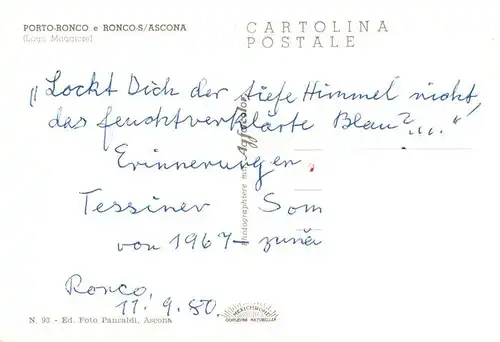 PORTO-RONCO e RONCO-S/ASCONA
(Lago Maggiore)
CARTOLINA
POSTALE
„Lockt Dich der tiefe Himmel nicht,
das feuchtverklärte Blau?...."
Erinnerungen
Tessiner Som
von 1967 –
Ronco,
11. 9. 80.
Photographiere mit Agfacolor
N. 93 - Ed. Foto Pancaldi, Ascona